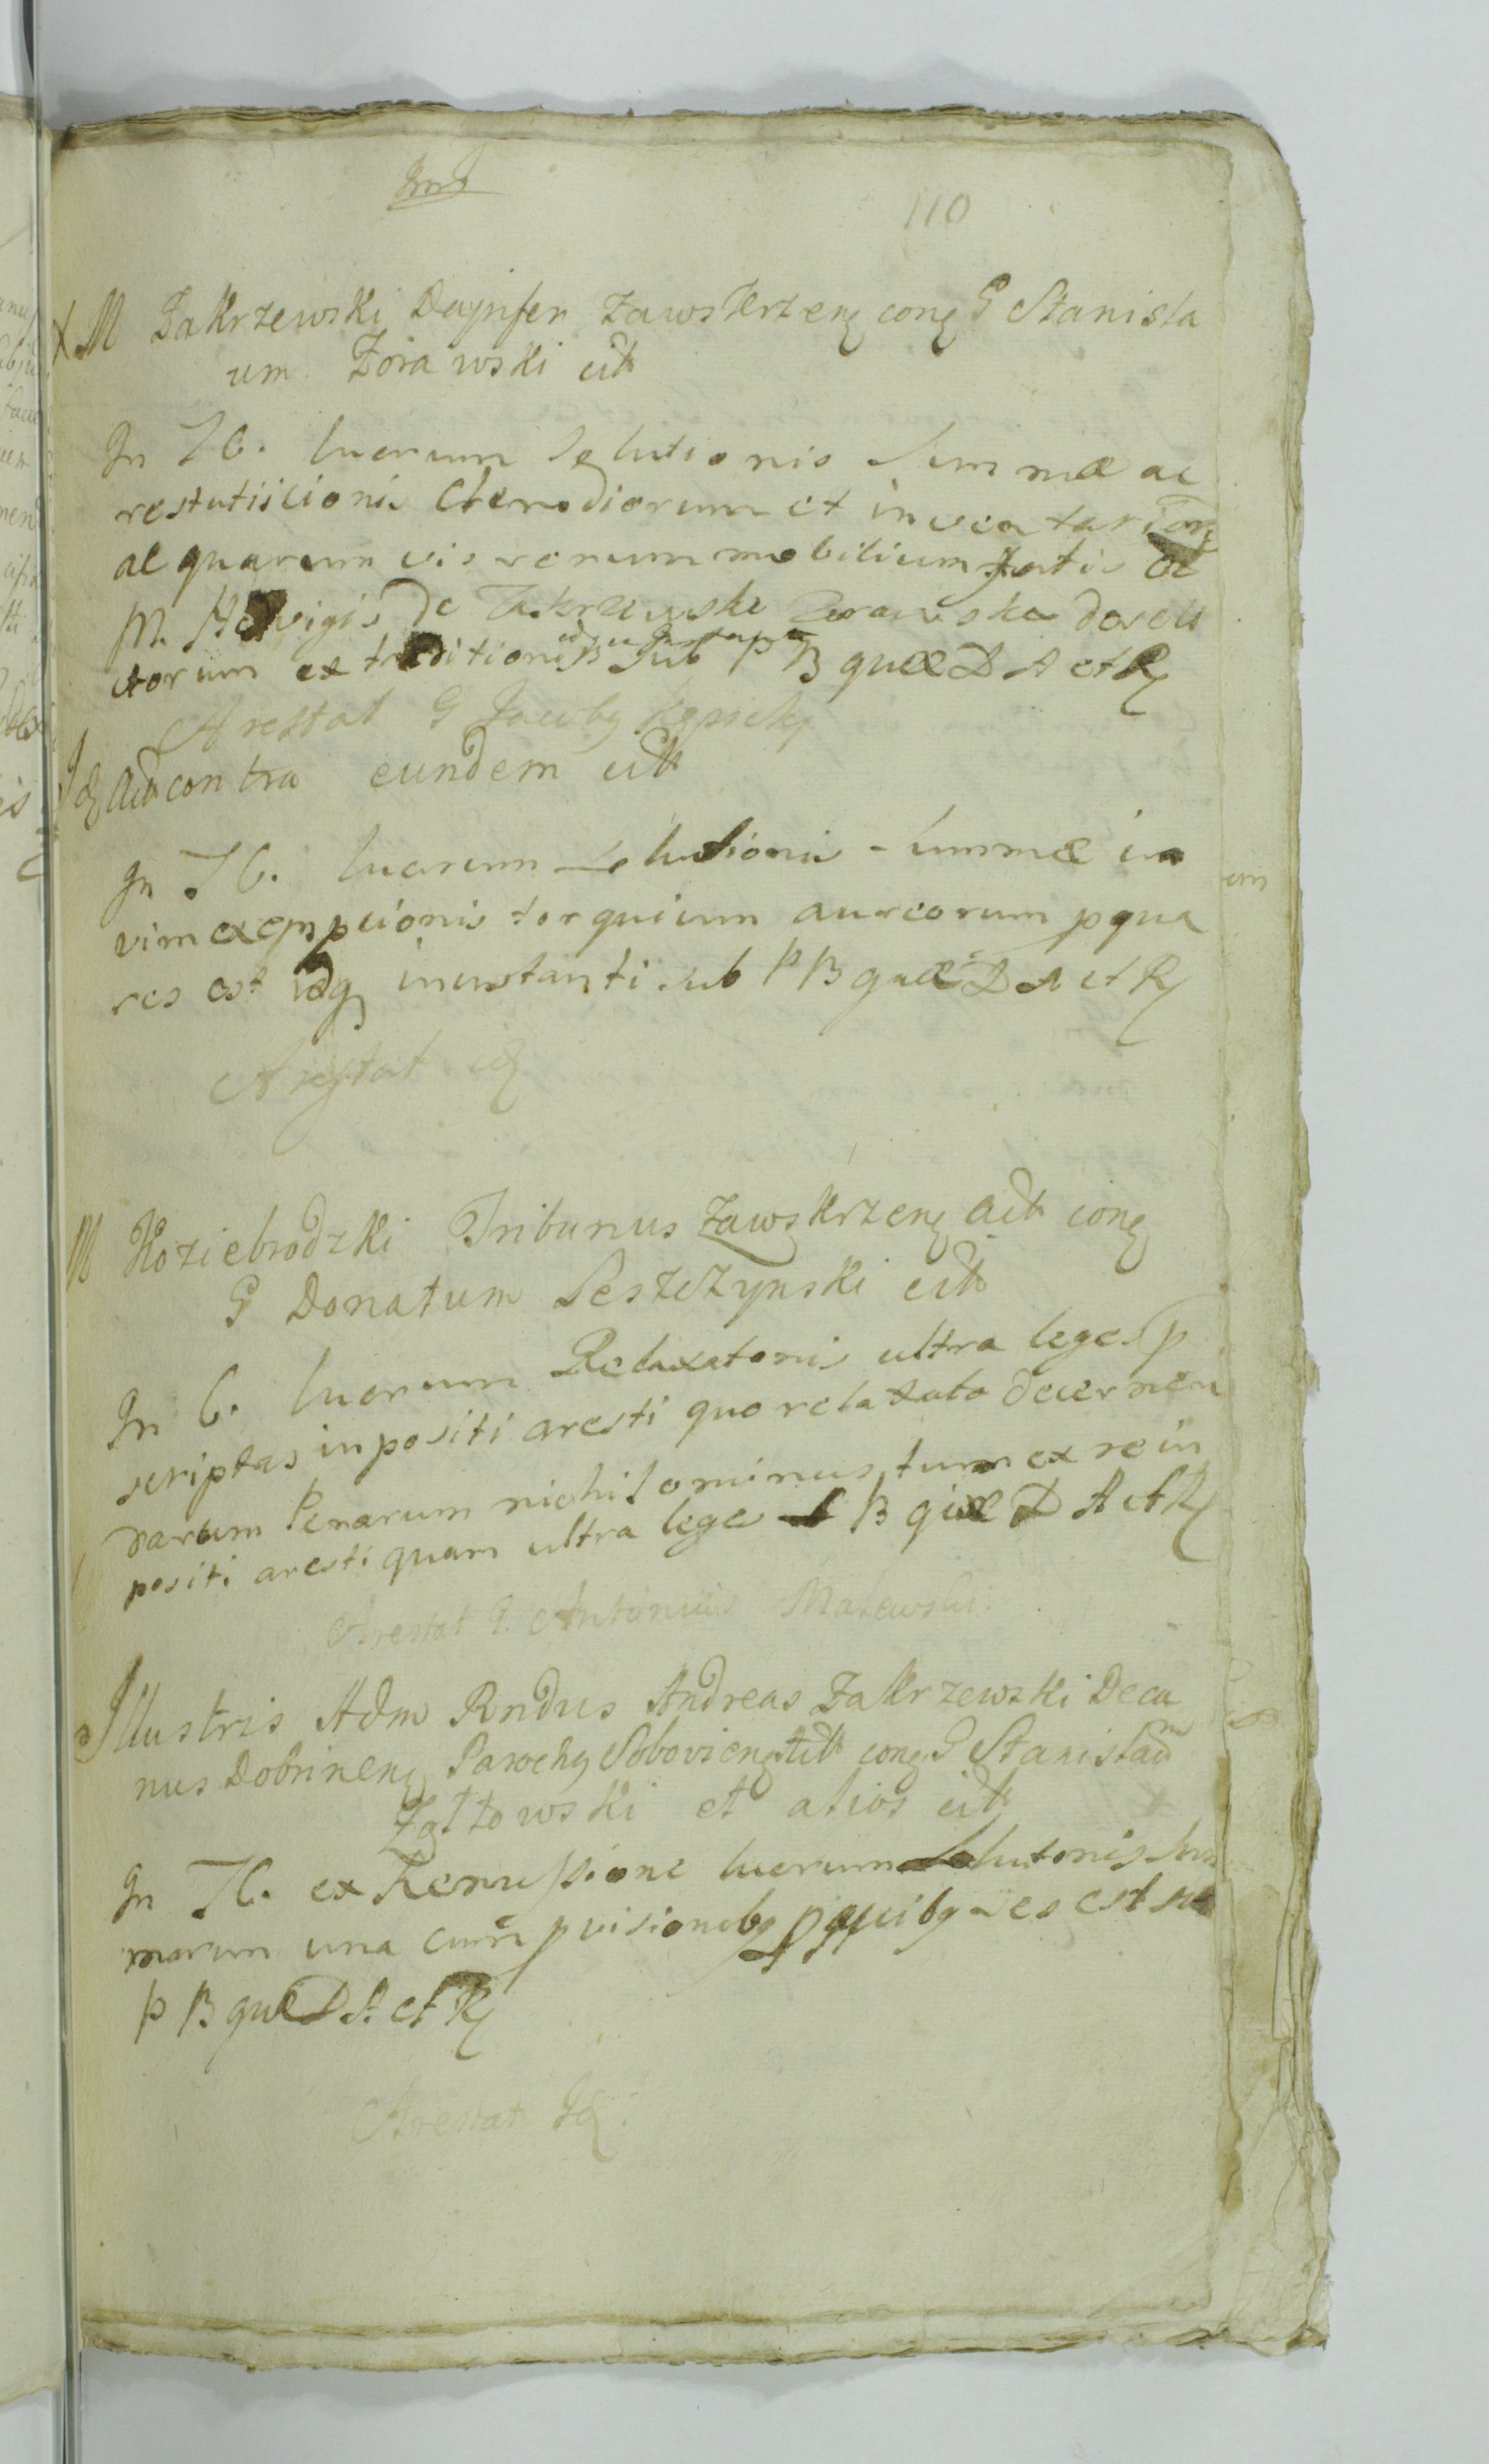 110
M Zakrzewski Dapifer Zawskrzenẽ conẽ G Stanisla
um Zórawski citt
In TC. lucrorum Solutionis Summæ ac
restutiicionis et inventariorũ
al quarum vis rerum mobilium
M. Hedvigis de Zakrzewskie Zorawska
ctorum extraditionis sub P B quæ D A et R
Arestat G Jacobg Kępski
Id Actt contra eundem citt
In TC. lucrorum Solutionis Summæ in
vim exempcionis torquium aureorum pqua
res est idq in instanti sub P B quæ D A et R
Arestat id
M Koziebrodzki Tribunus Zawskrzenẽ Actt conẽ
G Donatum Leszczynski citt
In C. lucrorum Relaxatonis ultra leges p
scriptas inpositi aresti quo relaxato decernen
darum Penarum nichilominus tum ex re in
positi aresti quam ultra leges B quæ D A et R
Arestat G. Antonius Malewski.
Illustris Adm Rndus Andreas Zakrzewski Deca
nus Dobrinenẽ Parochg Sobovienẽ Actt conẽ G Stanislaũ
et alios citt
In TC. ex Remissione lucrorum Solutonis Sum
marum una cum pvisionibg pquibg res est sub
P B quæ D A et R
Arestat Id.